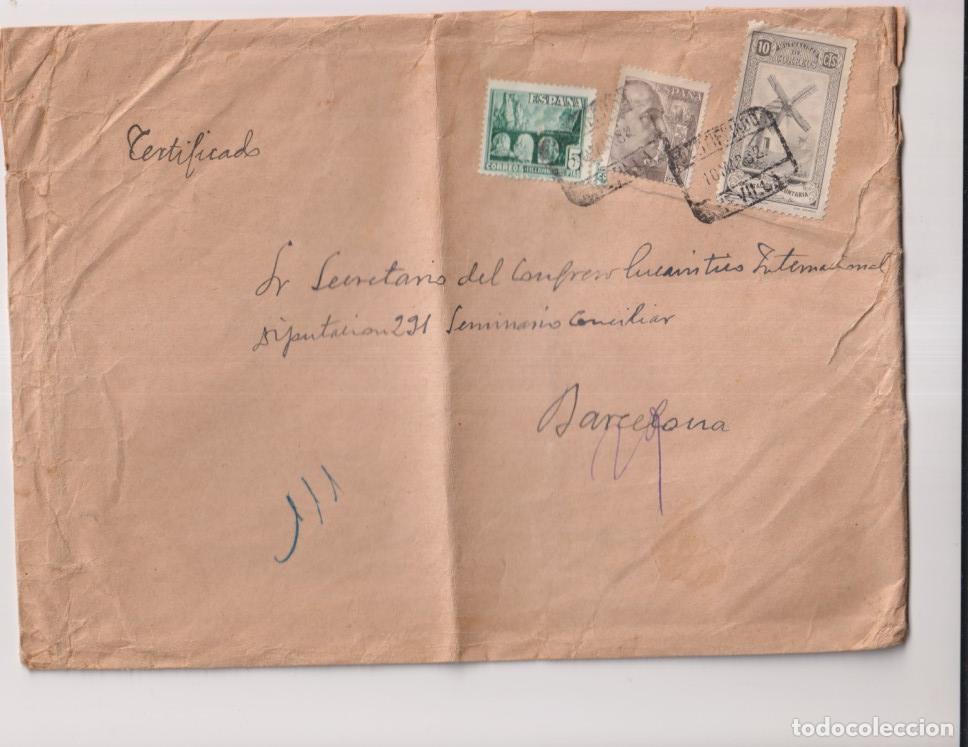 10 CTS
CORREOS
ESPAÑA
ESPAÑA
5
CORREOS
CERTIFICADO
10 MAR 52
Certificado
Sr Secretario del Congreso Eucaristico Internacional
Diputacion 231 Seminario Conciliar
Barcelona
todocoleccion